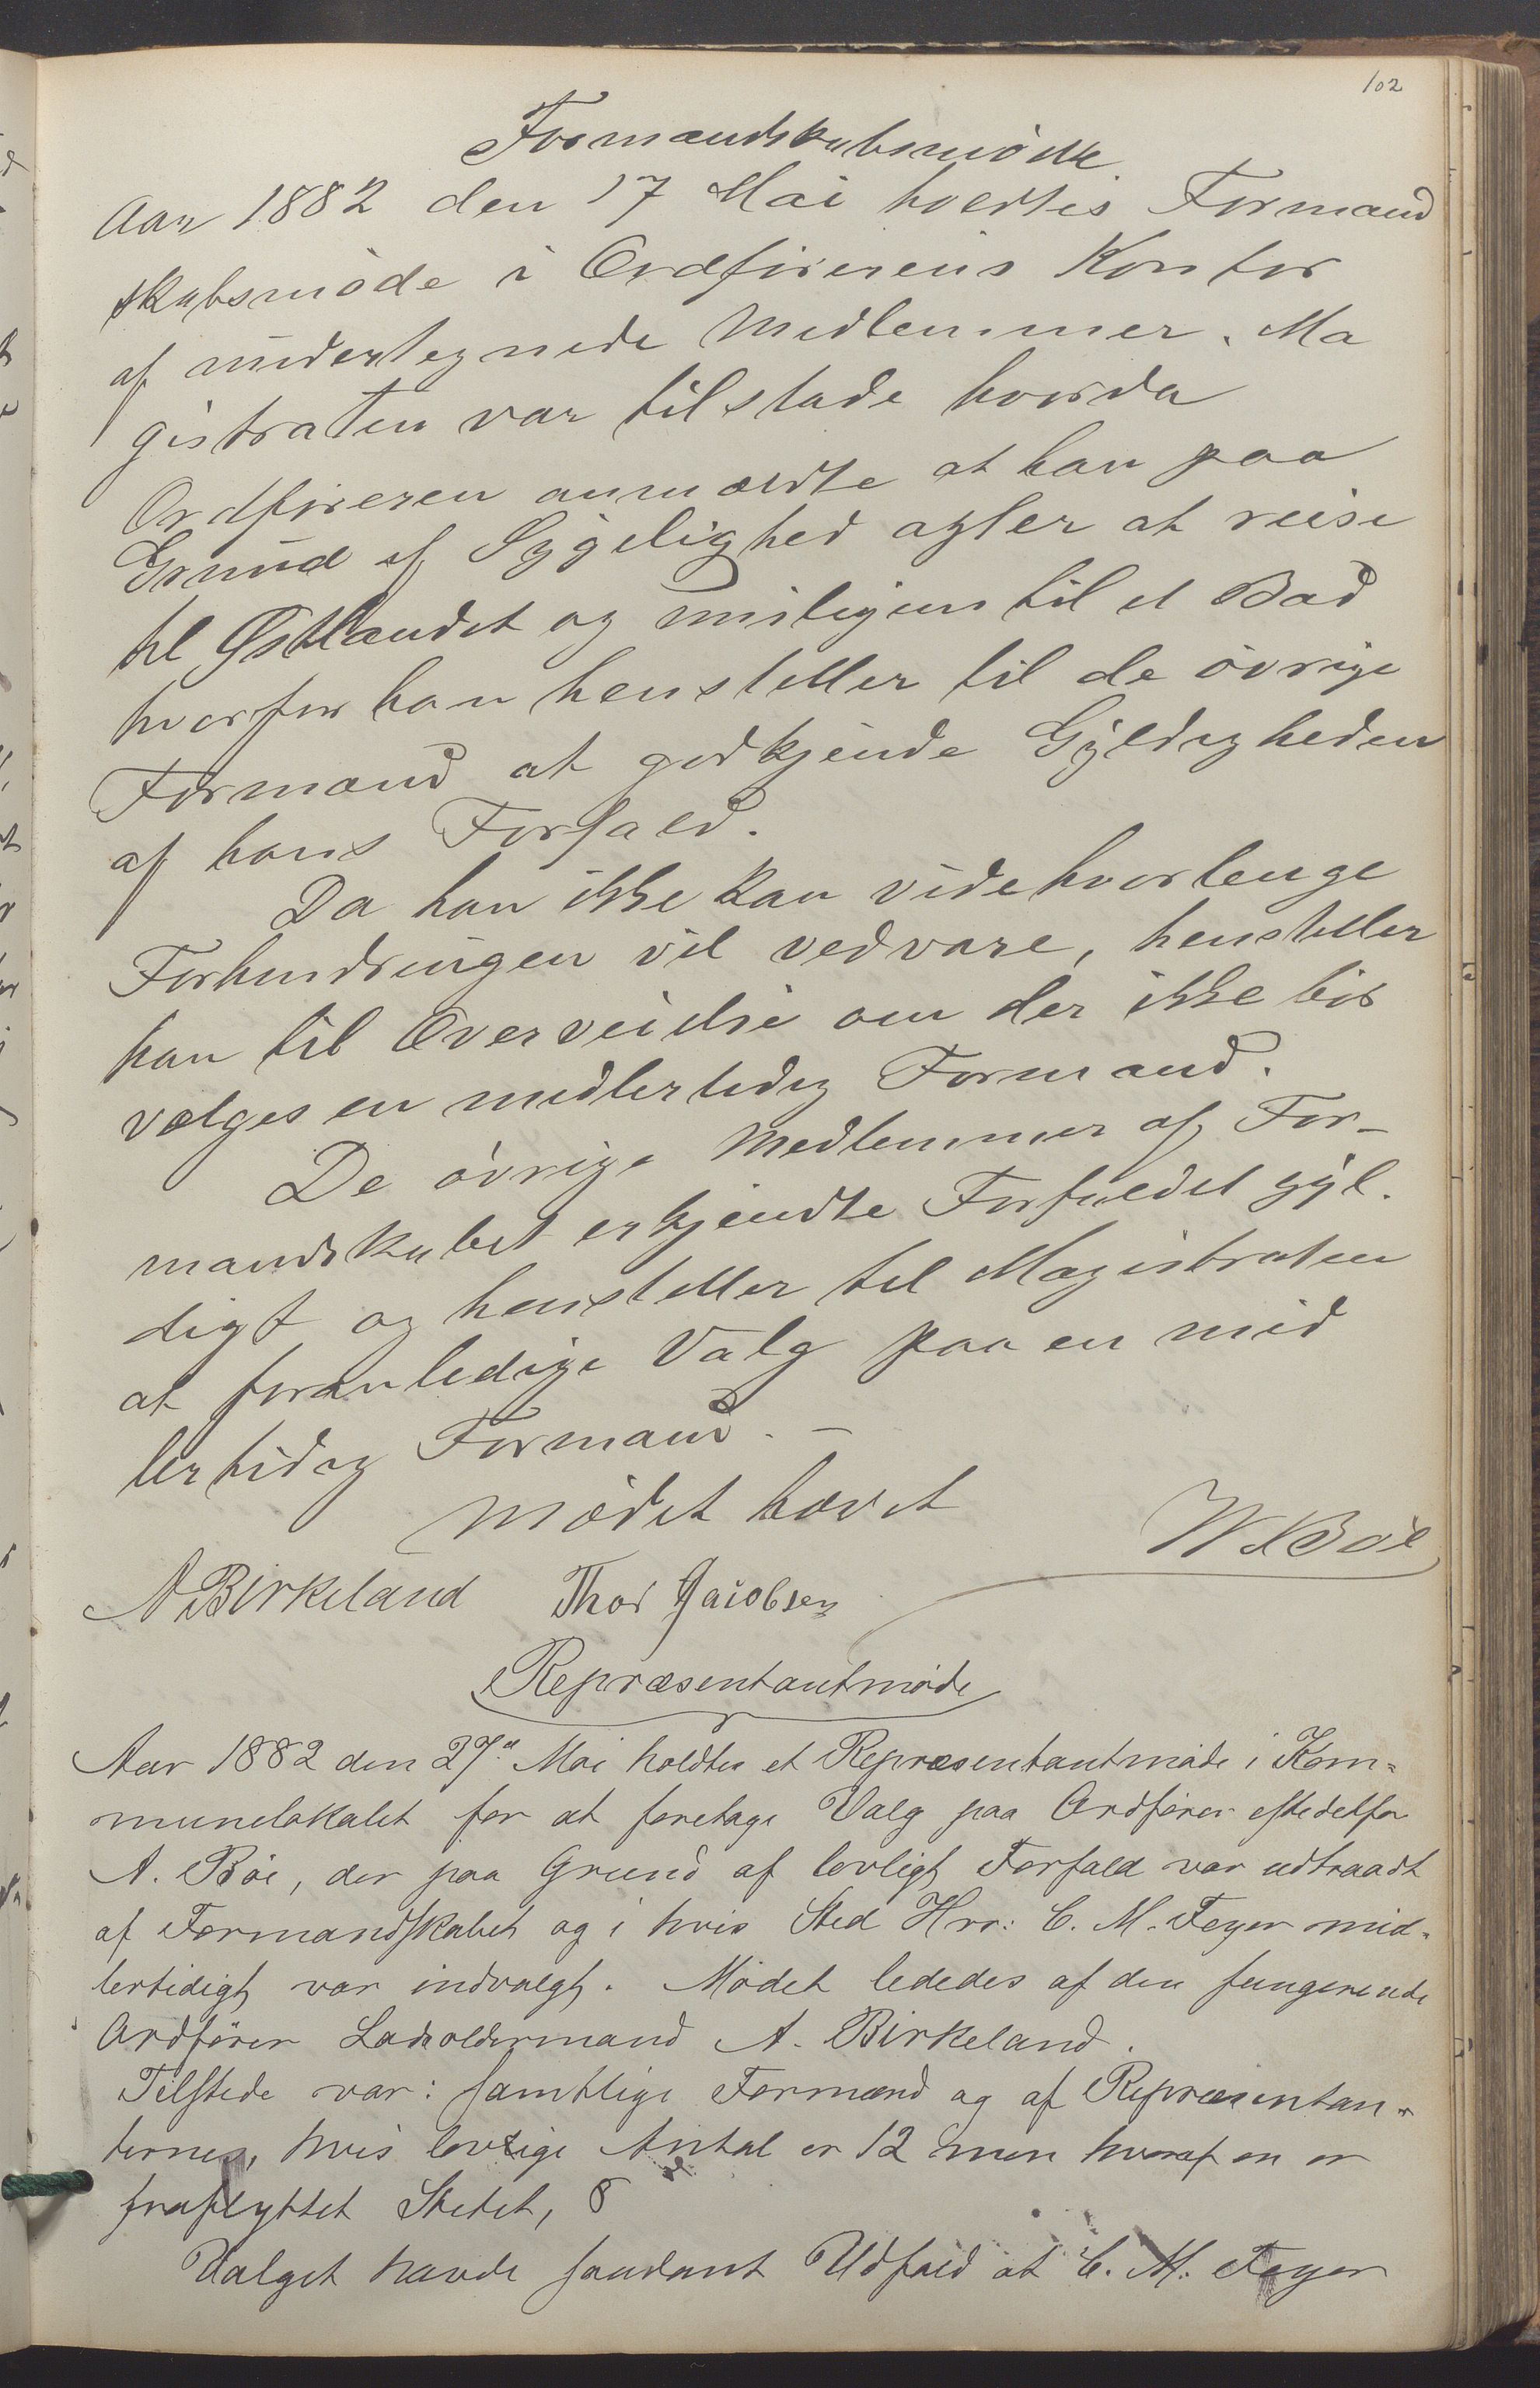 102
Formandskabsmöde
Aar 1882 den 17 Mai holdtes Formand
skabsmöde i Ordförerens Kontor
af undertegnede Medlemmer. Ma
gistraten var tilstæde hvorda
Ordföreren anmældte at han paa
Grund af Sygelighed agter at reise
til Østlandet og muligens til et Bad
hvorfor han henstiller til de övrige
Formænd at godkjende Gyldigheden
af hans Forfald.
Da han ikke kan vide hvorlenge
Forhindringen vil vedvare, henstiller
han til Overveielse om der ikke bör
vælges en midlertidig Formand.
De övrige Medlemmer af For-
mandskabet erkjendte Forfaldet gyl.
digt og henstiller til Magistraten
at foranledige Valg paa en mid
lertidig Formand. -
Mödet hævet
A Böe
A Birkeland Thor Jacobsen
Repræsentantmöde
Aar 1882 den 27de Mai holdtes et Repræsentantmöde i Kom-
munelokalet for at foretage Valg paa Ordförer istedetfor
A. Böe, der paa Grund af lovligt Forfald var udtraadt
af Formandskabet og i hvis Sted Hrr: C. M. Feyer mid-
lertidigt var indvalgt. Mödet lededes af den fungerende
Ordförer Ladeoldermand A. Birkeland.
Tilstede var: samtlige Formænd og af Repræsentan-
ternes, hvis lovlige Antal er 12 men hvoraf en er
fraflyttet Stedet, 8
Valget havde saadant Udfald at C. M. Feyer